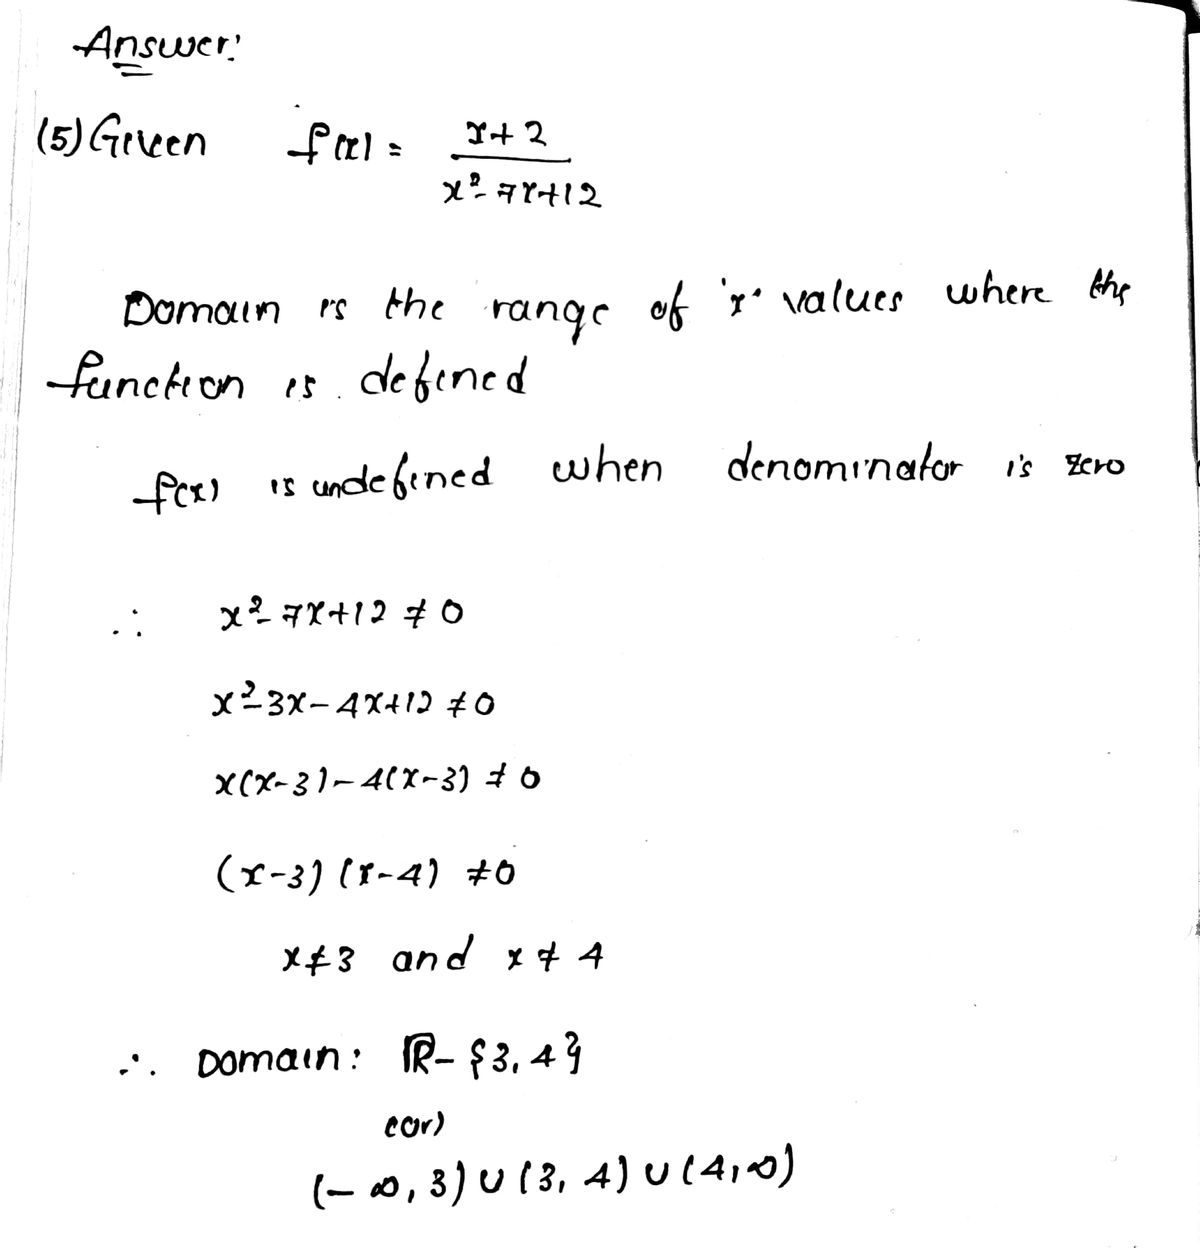 Answer:
(5) Given f(x) = x+2 / x²-7x+12
Domain is the range of 'x' values where the
function is defined
f(x) is undefined when denominator is zero
∴ x²-7x+12 ≠ 0
x²-3x-4x+12 ≠ 0
x(x-3)-4(x-3) ≠ 0
(x-3)(x-4) ≠ 0
x≠3 and x≠4
∴ Domain: ℝ-{3,4}
(or)
(-∞,3)∪(3,4)∪(4,∞)